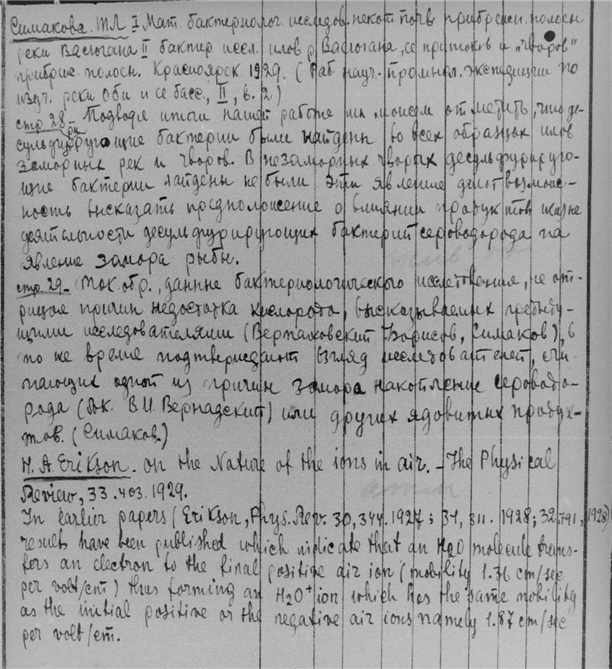 Симакова. Т.Л. I Мат. бактериолог исследов. некот почв прибрежн. полосы
реки Васюгана II бактер иссл. илов р. Васюгана, её притоков и "чворов"
прибреж. полосы. Красноярск. 1929. (Раб науч.-промысл. экспедиции по
изуч. реки Оби и её басс., II, в. 2)
стр 28 - Подводя итоги нашей работе мы можем отметить, что де-
сульфурирующие бактерии были найдены во всех образцах илов
заморных рек и чворов. В незаморных чворах десульфурирую-
щие бактерии найдены не были Эти явление дают возмож-
ность высказать предположение о влиянии продуктов жизне
деятельности десульфурирующих бактерий сероводорода на
явление замора рыбы.
стр. 29 - Так. обр., данные бактериологического исследования, не от-
рицая причин недостатка кислорода, высказываемых предыду-
щими исследователями (Верпаховский Борисов, Симаков), в
то же время подтверждают взгляд исследователей, счи-
тающих одной из причин замора накопление сероводо-
рода (док. В.И. Вернадский) или других ядовитых продук-
тов. (Симаков)
H. A. Erikson. On the Nature of the ions in air. - The Physical
Review, 33. 403. 1929.
In earlier papers (Erikson, Phys. Rev. 30, 344. 1927; 31, 311. 1928; 32, 791, 1928)
results have been published which indicate that an H2O molecule trans-
fers an electron to the final positive air ion (mobility 1.36 cm/sec
per volt/cm) thus forming an H2O+ ion which has the same mobility
as the initial positive or the negative air ions namely 1.87 cm/sec
per volt/cm.